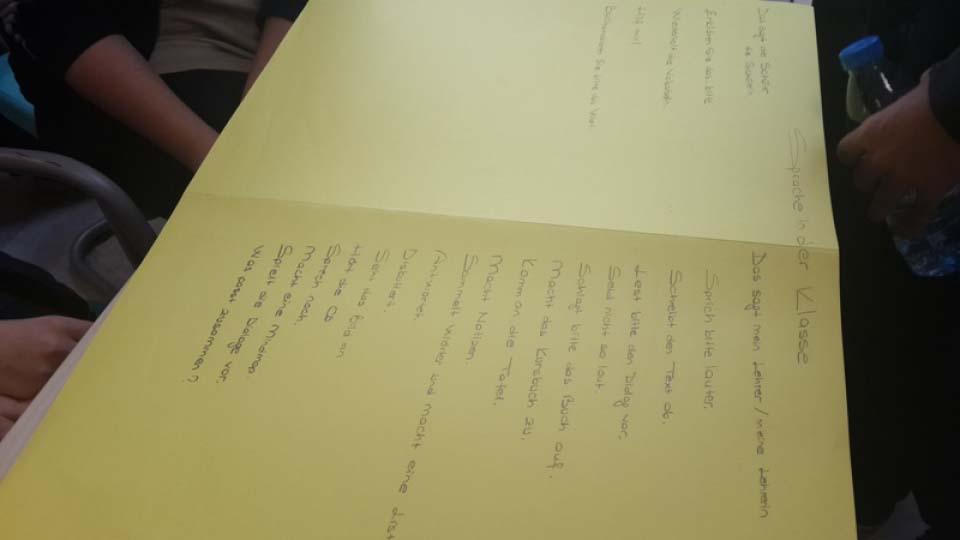 Sprache in der Klasse
Das sagt der Schüler
die Schülerin
Erklären Sie das bitte
Wiederholt die Vokabeln
Hilf mir!
Buchstabieren Sie bitte das Wort
Das sagt mein Lehrer / meine Lehrerin
Sprich bitte lauter.
Schreibt den Text ab.
Lest bitte den Dialog vor.
Seid nicht so laut.
Schlagt bitte das Buch auf.
Macht das Kursbuch zu.
Komm an die Tafel.
Macht Notizen.
Sammelt Wörter und macht eine
Antwortet.
Diskutiert.
Seht das Bild an
Hört die CD
Sprich nach.
Macht eine Mindmap.
Spielt die Dialoge vor.
Was passt zusammen?